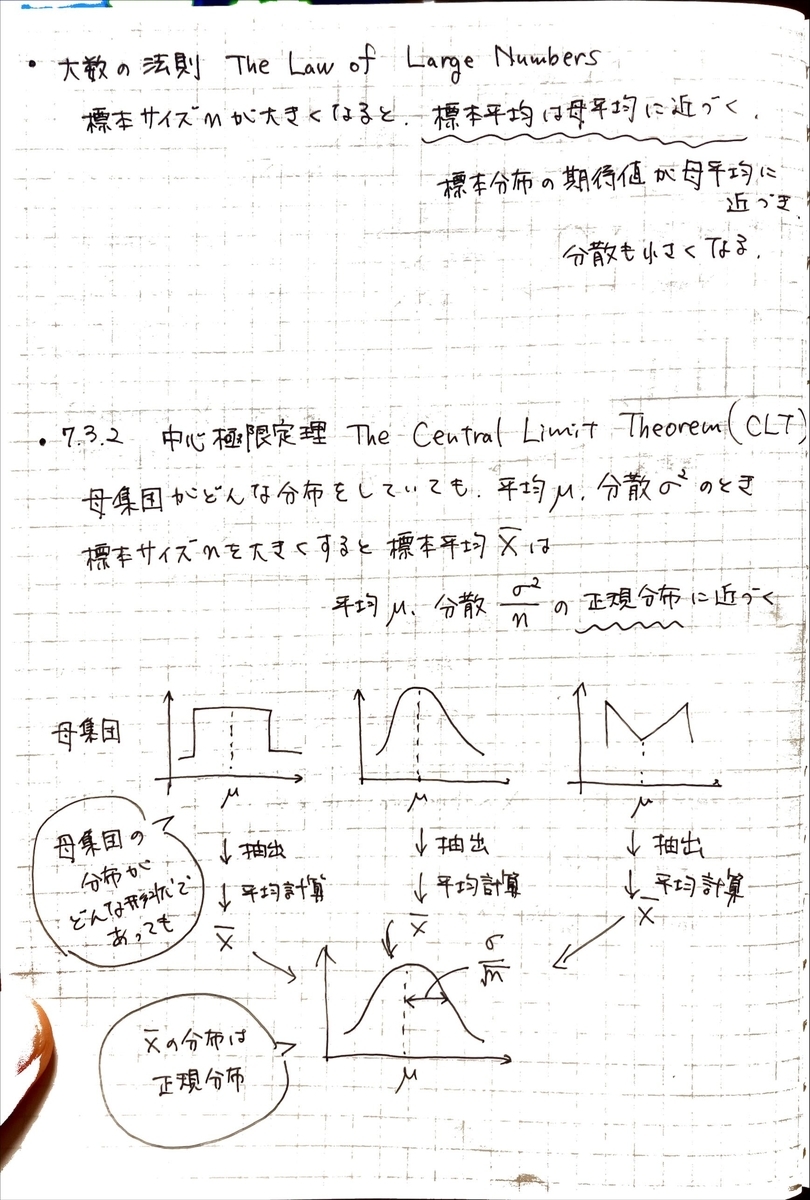 ・大数の法則 The Law of Large Numbers
標本サイズnが大きくなると、標本平均は母平均に近づく.
標本分布の期待値が母平均に
近づき、
分散も小さくなる.
・7.3.2 中心極限定理 The Central Limit Theorem (CLT)
母集団がどんな分布をしていても、平均μ, 分散σ²のとき
標本サイズnを大きくすると標本平均X̄は
平均μ, 分散σ²/nの正規分布に近づく
母集団
μ μ μ
母集団の
分布が
どんな形状で
あっても
↓抽出 ↓抽出 ↓抽出
↓平均計算 ↓平均計算 ↓平均計算
X̄ X̄ X̄
σ/√n
X̄の分布は
正規分布
μ